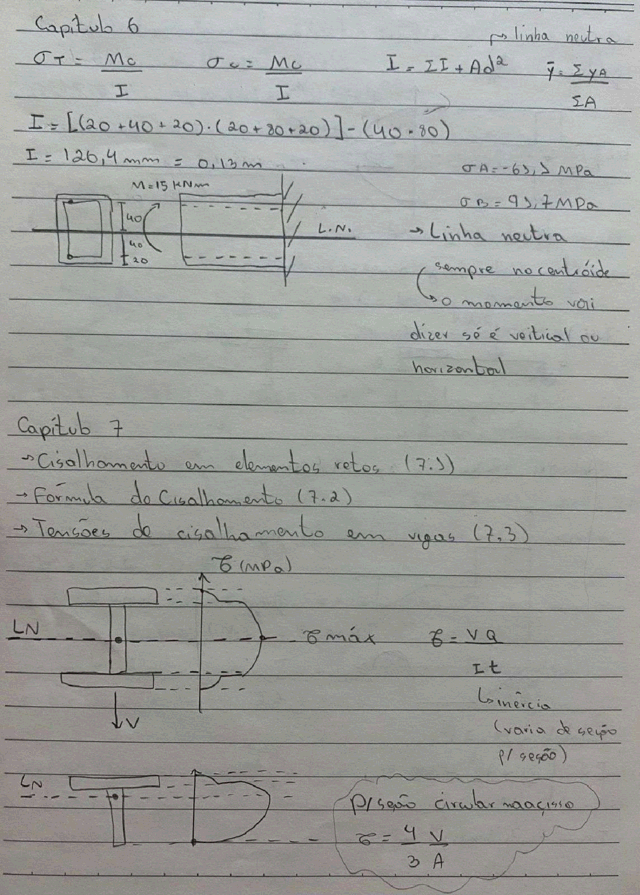 Capítulo 6
↱ linha neutra
σT = Mc / I σc = Mc / I I = ΣI + Ad² ȳ = ΣyA / ΣA
I = [(20+40+20)·(20+80+20)] - (40·80)
I = 126,4mm = 0,13m
σA = -69,9 MPa
M=15 kNm
σB = 99,7 MPa
40
L.N. → Linha neutra
40
20
sempre no centróide
↳ o momento vai
dizer só é veitical ou
horizontal
Capítulo 7
→ Cisalhamento em elementos retos (7.1)
→ Fórmula do Cisalhamento (7.2)
→ Tensões de cisalhamento em vigas (7.3)
τ (MPa)
LN τ máx τ = VQ / It
↳ inércia
V
(varia de seção
p/ seção)
LN
p/ seção circular maciço
τ = 4/3 V/A